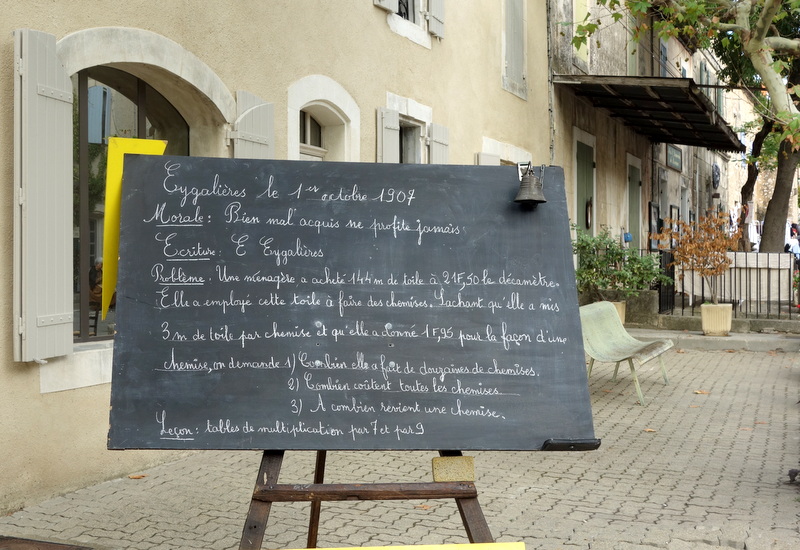 Eygalières le 1er octobre 1907
Morale : Bien mal acquis ne profite jamais.
Ecriture : E Eygalières
Problème . Une ménagère a acheté 144 m de toile à 21F,50 le décamètre.
Elle a employé cette toile à faire des chemises. Sachant qu'elle a mis
3 m de toile par chemise et qu'elle a donné 1F,95 pour la façon d'une
chemise, on demande 1) Combien elle a fait de douzaines de chemises.
2) Combien coûtent toutes les chemises
3) A combien revient une chemise.
Leçon : tables de multiplication par 7 et par 9